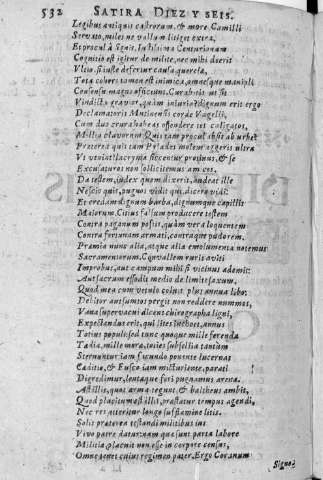 532 SATIRA DIEZ Y SEIS.
Legibus antiquis castrorum, & more Camilli
Seruato, miles ne vallum litiget extra,
Et procul à signis. Iustissima Centurionum
Cognitio est igitur de milite, nec mihi deerit
Vltio, si iustæ defertur causa querelæ,
Tota cohors tamen est inimica, omnesque manipli
Consensu magno officiunt. Curabitis vt sit
Vindicta grauior, quàm iniuria: dignum erit ergo
Declamatoris Mutinensis corde Vagelli,
Cum duo crura habeas offendere tot caligatos,
Millia clauorum. Quis tam procul absit ab vrbe?
Præterea quis tam Pylades molem aggeris vltra
Vt veniat? lacryma siccentur protinus, & se
Excusaturos non sollicitemus amicos.
Da testem, iudex quum dixerit, audeat ille
Nescio quis, pugnos vidit qui, dicere vidi:
Et credam dignum barba, dignumque capillis
Maiorum. Citius falsum producere testem
Contra paganum possis, quàm vera loquentem
Contra fortunam armati, contraque pudorem.
Præmia nunc alia, atque alia emolumenta notemus
Sacramentorum. Conuallem ruris auiti
Improbus, aut campum mihi si vicinus ademit:
Aut sacrum effodit medio de limite saxum,
Quod mea cum vetulo coluit puls annua libo:
Debitor aut sumptos pergit non reddere nummos,
Vana superuacui dicens chirographa ligni,
Expectandus erit, qui lites inchoet, annus
Totius populi: sed tunc quoque mille ferenda
Tædia, mille moræ, toties subsellia tantùm
Sternuntur: iam facundo ponente lacernas
Cæditio, & Fusco iam micturiente, parati
Digredimur, lentaque fori pugnamus arena.
Ast illis, quos arma tegunt, & baltheus ambit,
Quod placitum est illis, præstatur tempus agendi,
Nec res atteritur longo sufflamine litis.
Solis præterea testandi militibus ius
Viuo patre datur: nam quæ sunt parta labore
Militiæ, placuit non esse in corpore census,
Omne tenet cuius regimen pater. Ergo Coranum
Signo-